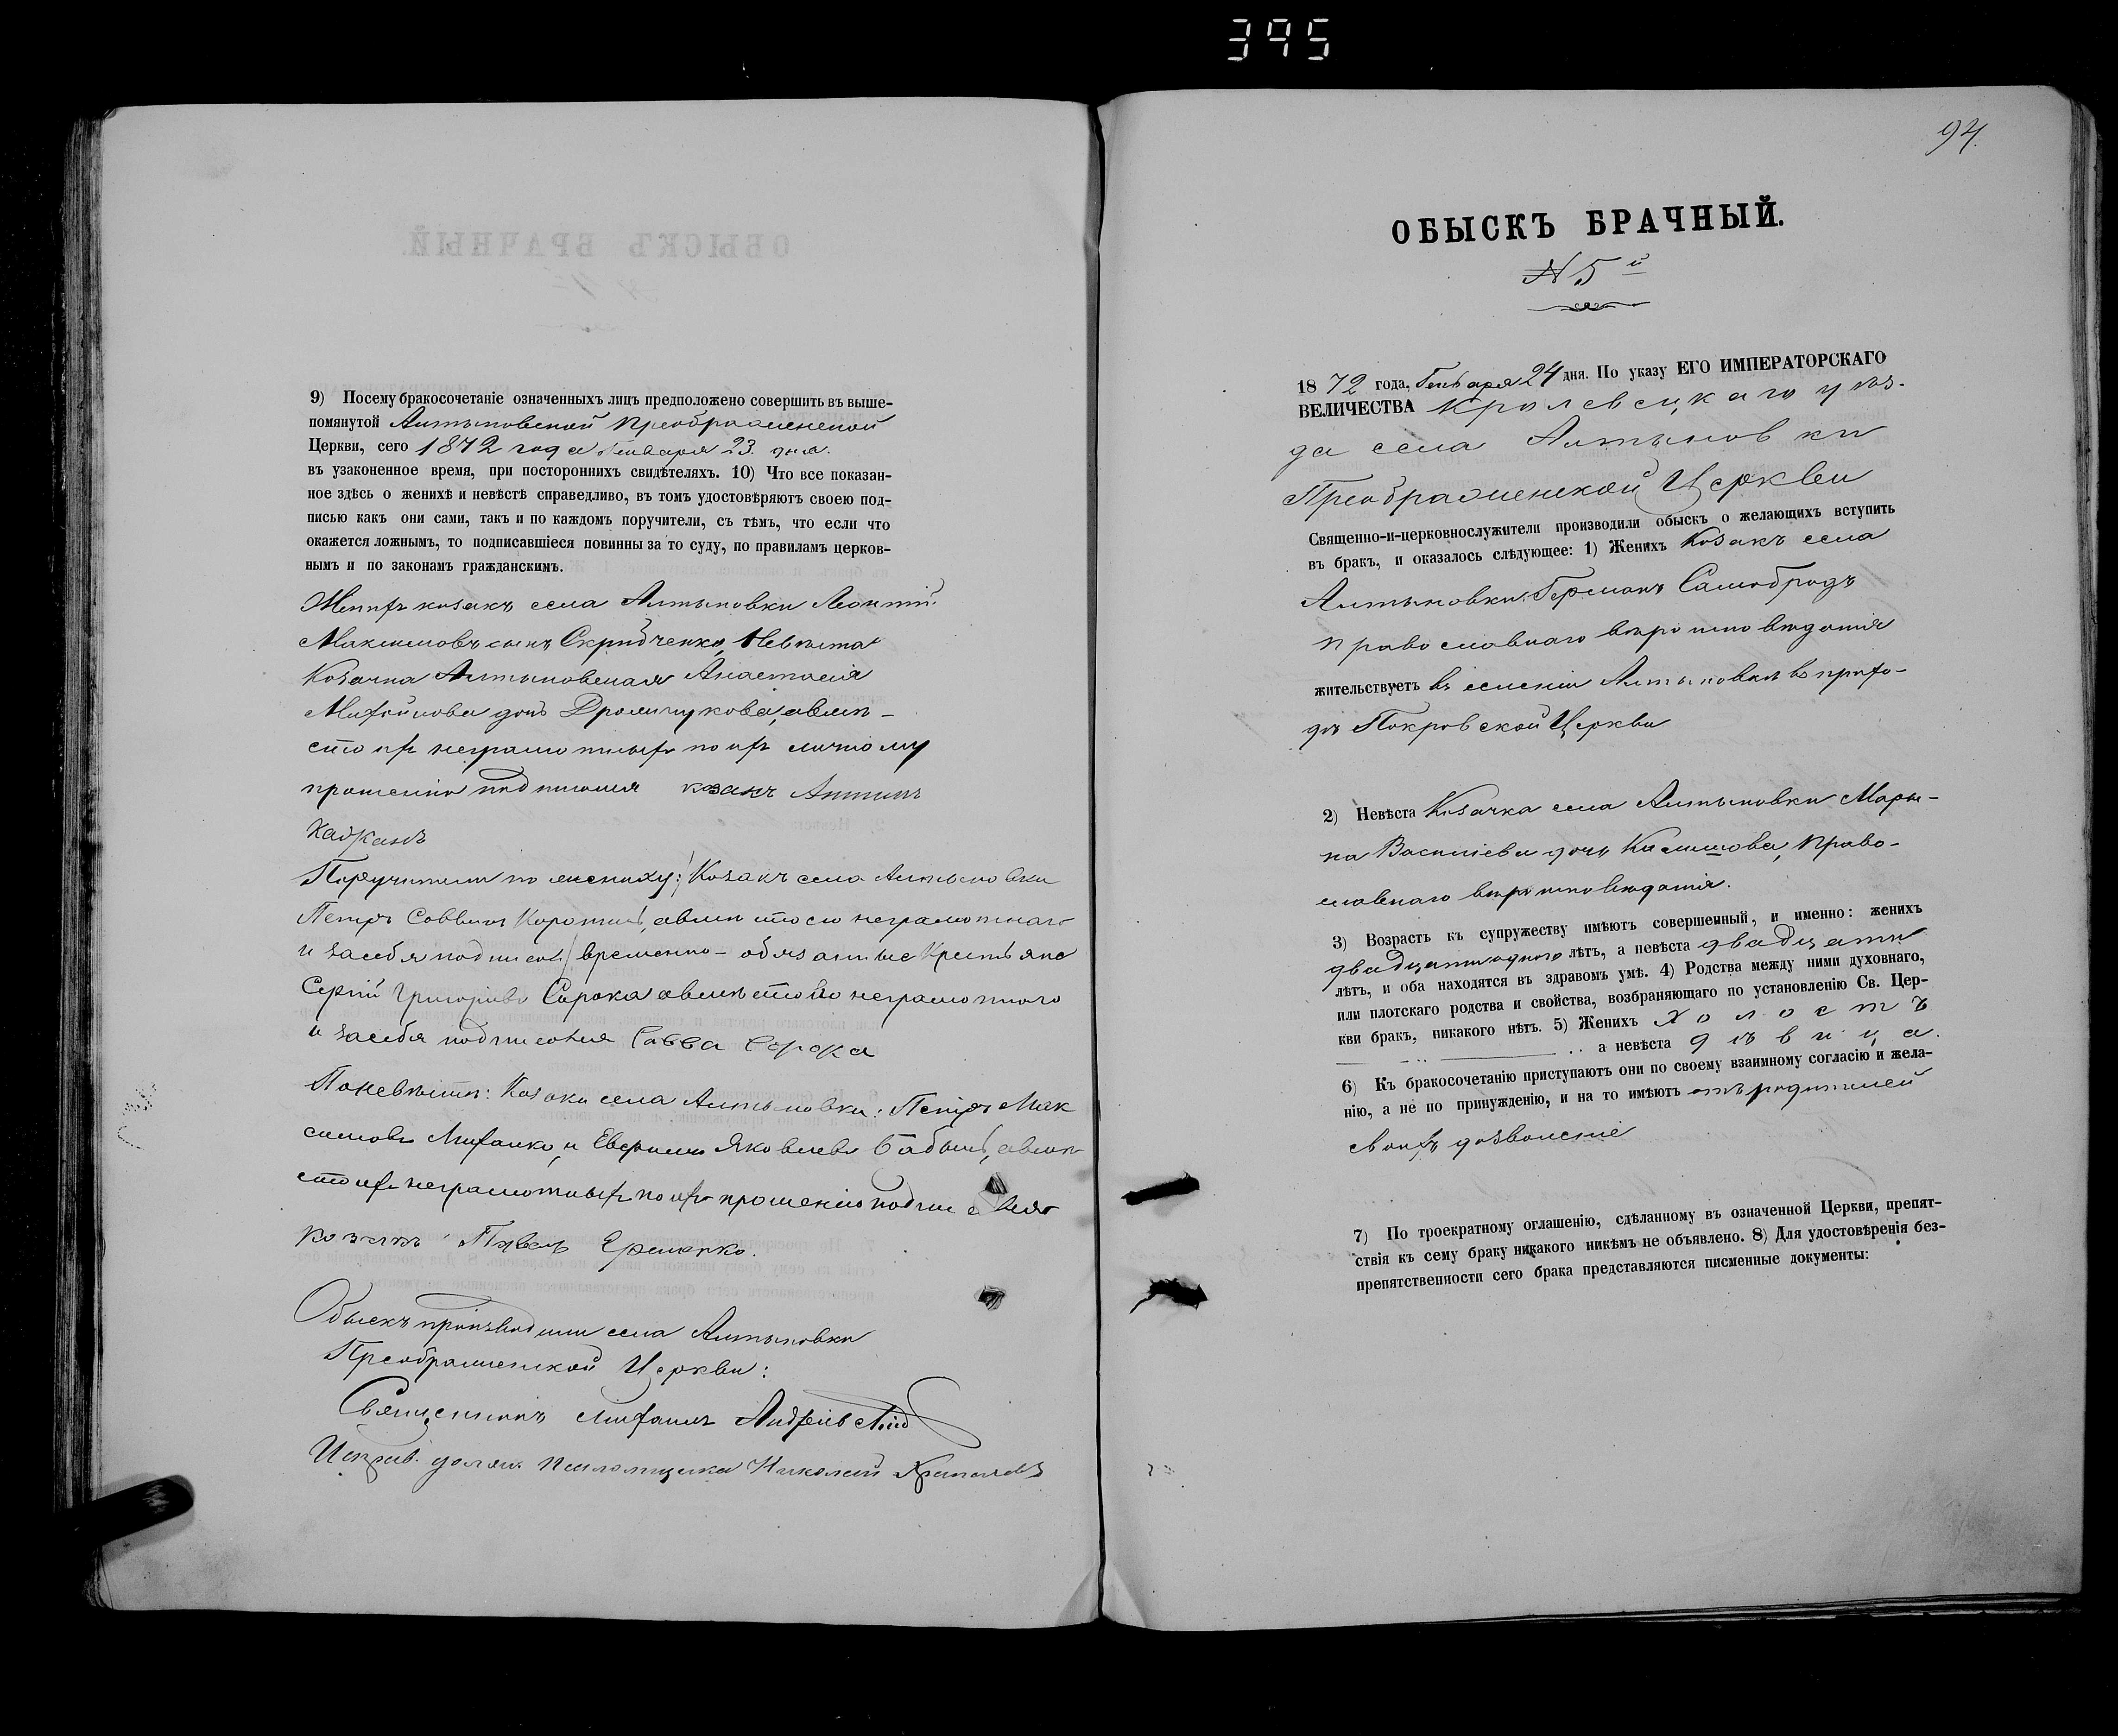 395
9) Посему бракосочетаніе означенныхъ лицъ предположено совершить въ выше-
помянутой Алтыновской Преображенской
Церкви, сего 1872 года Генваря 23. дня.
въ узаконенное время, при постороннихъ свидѣтеляхъ. 10) Что все показан-
ное здѣсь о женихѣ и невѣстѣ справедливо, въ томъ удостовѣряютъ своею под-
писью какъ они сами, такъ и по каждомъ поручители, съ тѣмъ, что если что
окажется ложнымъ, то подписавшіеся повинны за то суду, по правиламъ церков-
нымъ и по законамъ гражданскимъ.
Женихъ козакъ села Алтыновки Леонтій
Максимовъ сынъ Скридченко, Невѣста
Козачка Алтыновская Анастасія
Михайлова дочь, авмѣ-
сто ихъ неграмотныхъ по ихъ личному
прошенію подписался козакъ Антинъ
Поручители по жениху: Козакъ села Алтыновки
Петръ Саввинъ, авмѣсто его неграмотнаго
и засебя подписал временно-обязанные Крестьяне
Сергій Григоріевъ Сорока авмѣсто его неграмотнаго
и засебя подписался Савва Сорока
Поневѣстѣ: Козаки села Алтыновки: Петръ Мак
симовъ, и Яковлевъ Бабичъ, авмѣ
сто ихъ неграмотныхъ по ихъ прошенію подписался
козакъ Павелъ Ермолко.
Обыскъ производили села Алтыновки
Преображенской Церкви:
Священникъ Михаилъ
Исправ. должн. Псаломщика Николай
94.
ОБЫСКЪ БРАЧНЫЙ.
N 5й
1872 года, Генваря 24 дня. По указу ЕГО ИМПЕРАТОРСКАГО
ВЕЛИЧЕСТВА Кролевецкаго уѣз-
да села Алтыновки
Преображенской Церкви
Священно-и-церковнослужители производили обыскъ о желающихъ вступить
въ бракъ, и оказалось слѣдующее: 1) Женихъ Козакъ села
Алтыновки Германъ Самобродъ
православнаго вѣроисповѣданія
жительствуетъ въ селеніи Алтыновки въ прихо-
дѣ Покровской Церкви
2) Невѣста Козачка села Алтыновки Мари-
на Василіева дочь, право-
славнаго вѣроисповѣданія.
3) Возрастъ къ супружеству имѣютъ совершенный, и именно: женихъ
двадцатиодного лѣтъ, а невѣста двадцати
лѣтъ, и оба находятся въ здравомъ умѣ. 4) Родства между ними духовнаго,
или плотскаго родства и свойства, возбраняющаго по установленію Св. Цер-
кви бракъ, никакого нѣтъ. 5) Женихъ холостъ
а невѣста дѣвица.
6) Къ бракосочетанію приступаютъ они по своему взаимному согласію и жела-
нію, а не по принужденію, и на то имѣютъ отъ родителей
своихъ дозволеніе
7) По троекратному оглашенію, сдѣланному въ означенной Церкви, препят-
ствія къ сему браку никакого никѣмъ не объявлено. 8) Для удостовѣренія без-
препятственности сего брака представляются писменные документы: